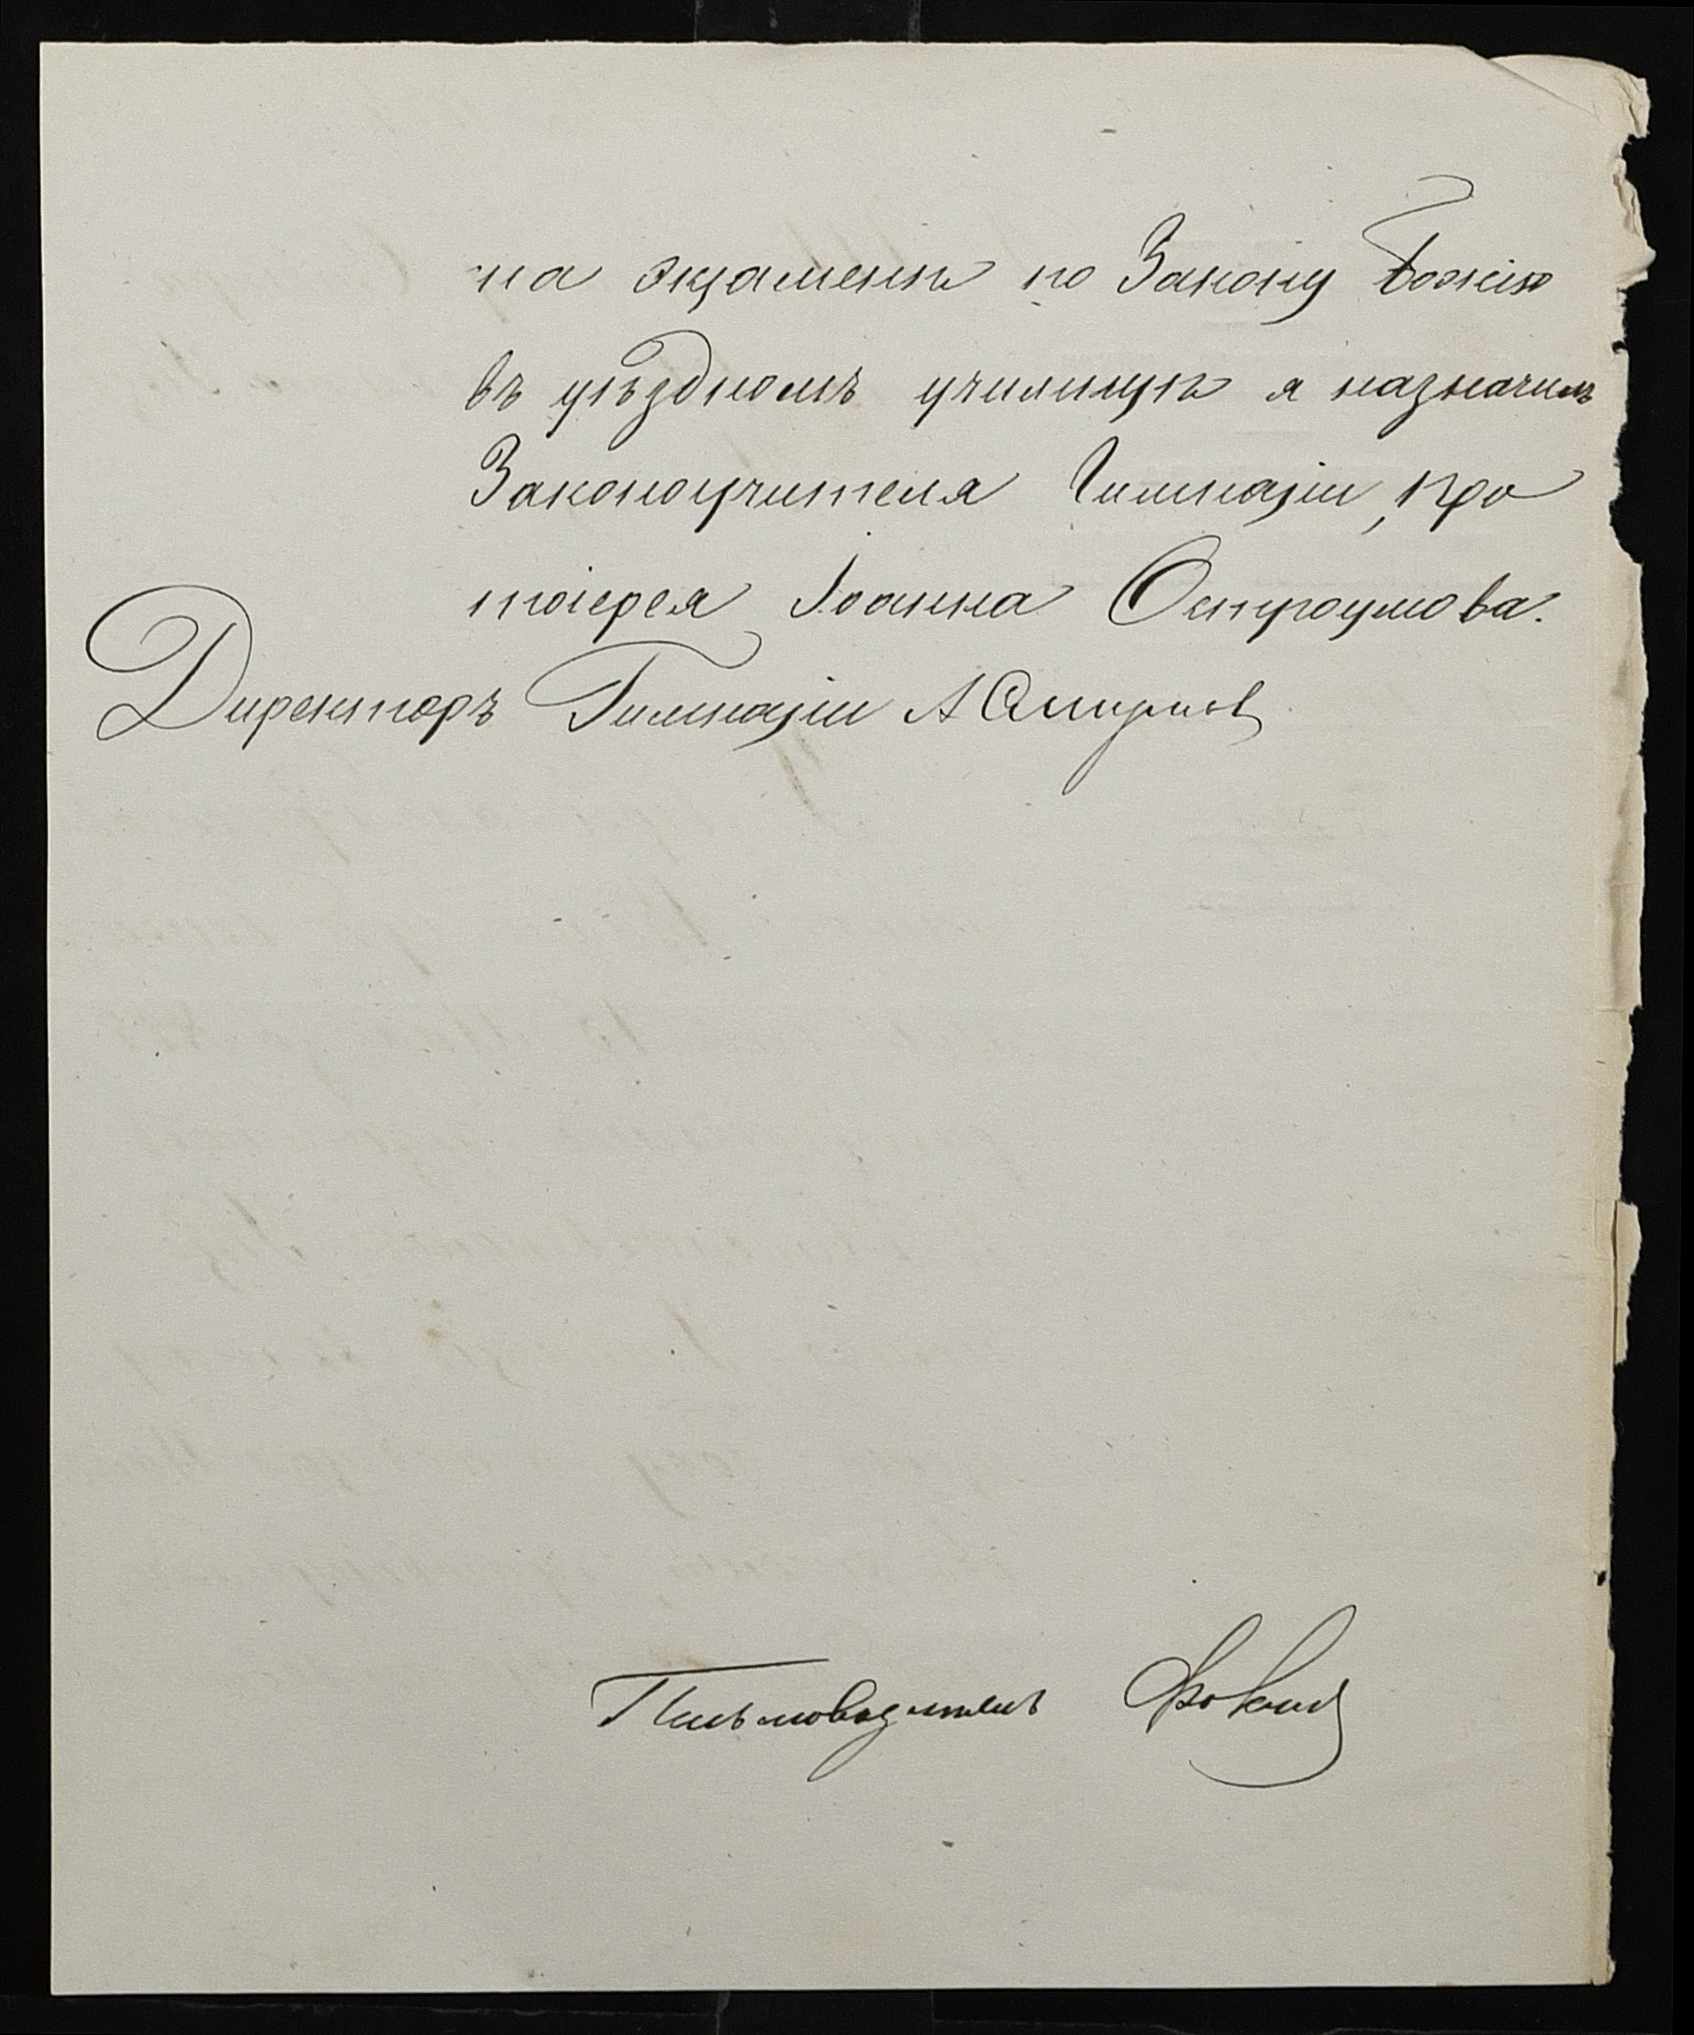 на экзаменъ по Закону Божію
въ уѣздномъ училищѣ я назначилъ
Законоучителя Гимназіи, про
тоіерея Іоанна Остроумова.
Директоръ Гимназіи А Смирнов
Письмоводитель